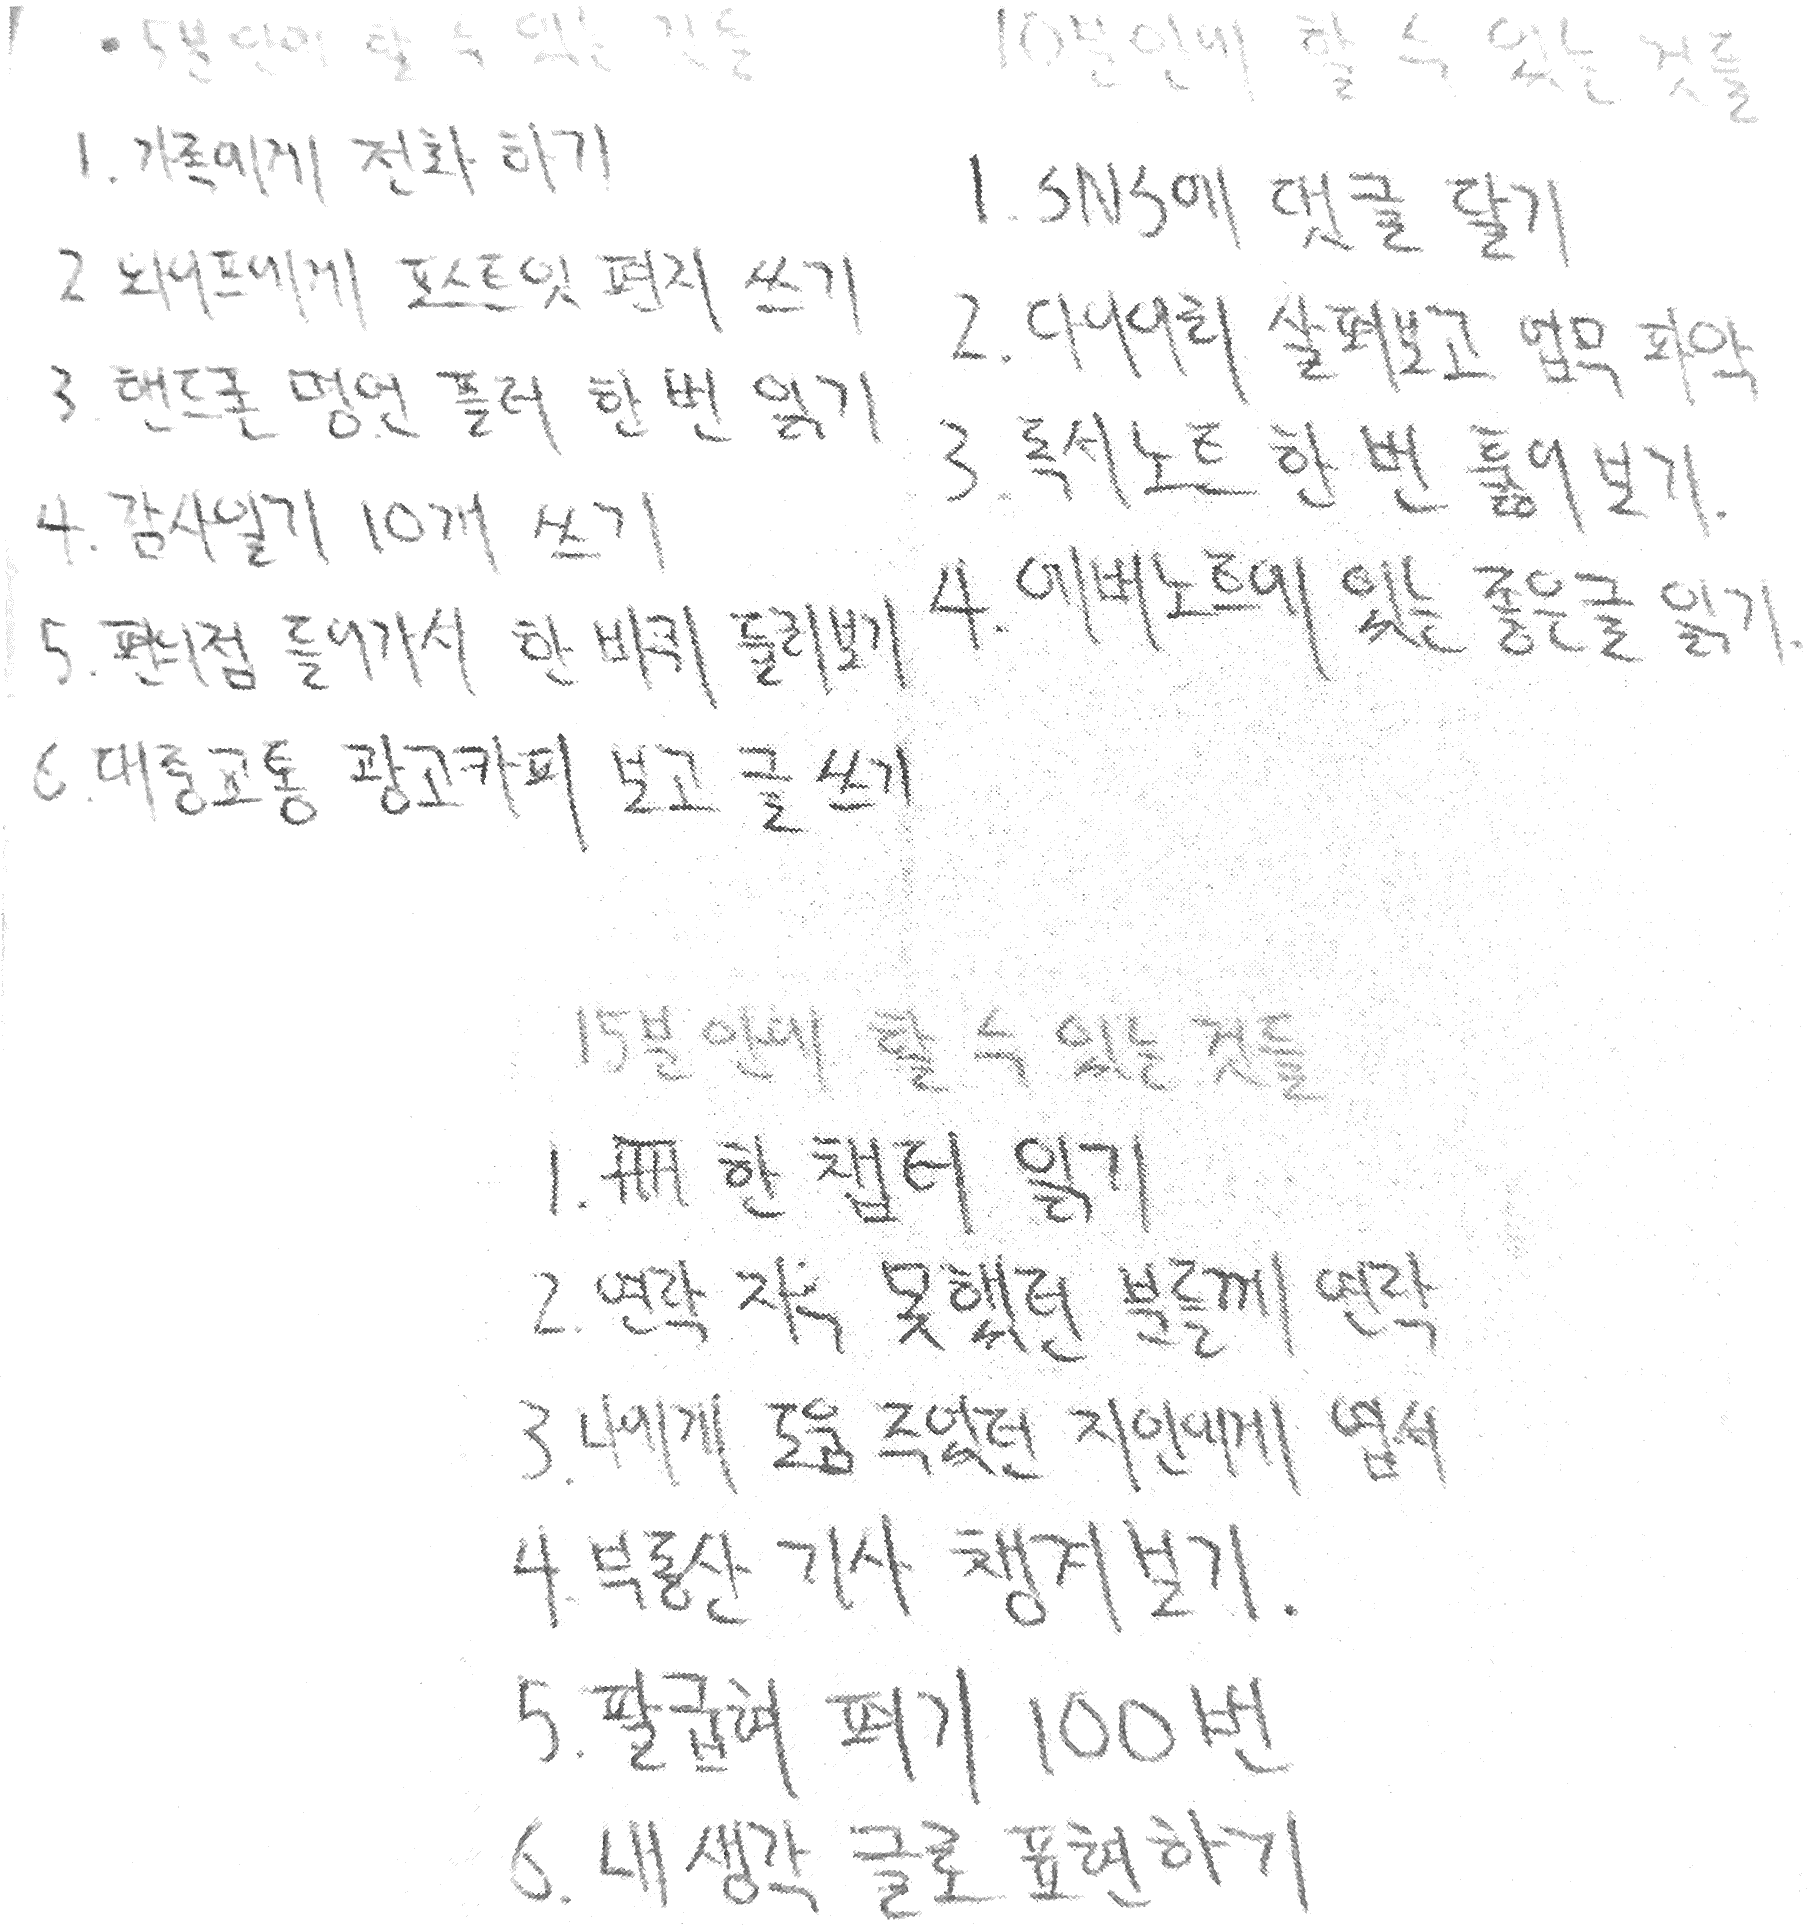 • 5분 안에 할 수 있는 것들
1. 가족에게 전화 하기
2 와이프에게 포스트잇 편지 쓰기
3. 핸드폰 명언 플러 한 번 읽기
4. 감사일기 10개 쓰기
5. 편의점 들어가서 한 바퀴 둘러보기
6. 대중교통 광고카피 보고 글 쓰기
10분 안에 할 수 있는 것들
1. SNS에 댓글 달기
2. 다이어리 살펴보고 업무 파악
3. 독서노트 한 번 훑어보기.
4. 에버노트에 있는 좋은글 읽기.
15분 안에 할 수 있는 것들
1. 한 챕터 읽기
2. 연락 자주 못했던 분들께 연락
3. 나에게 도움 주었던 지인에게 엽서
4. 부동산 기사 챙겨보기.
5. 팔굽혀 펴기 100번
6. 내 생각 글로 표현하기